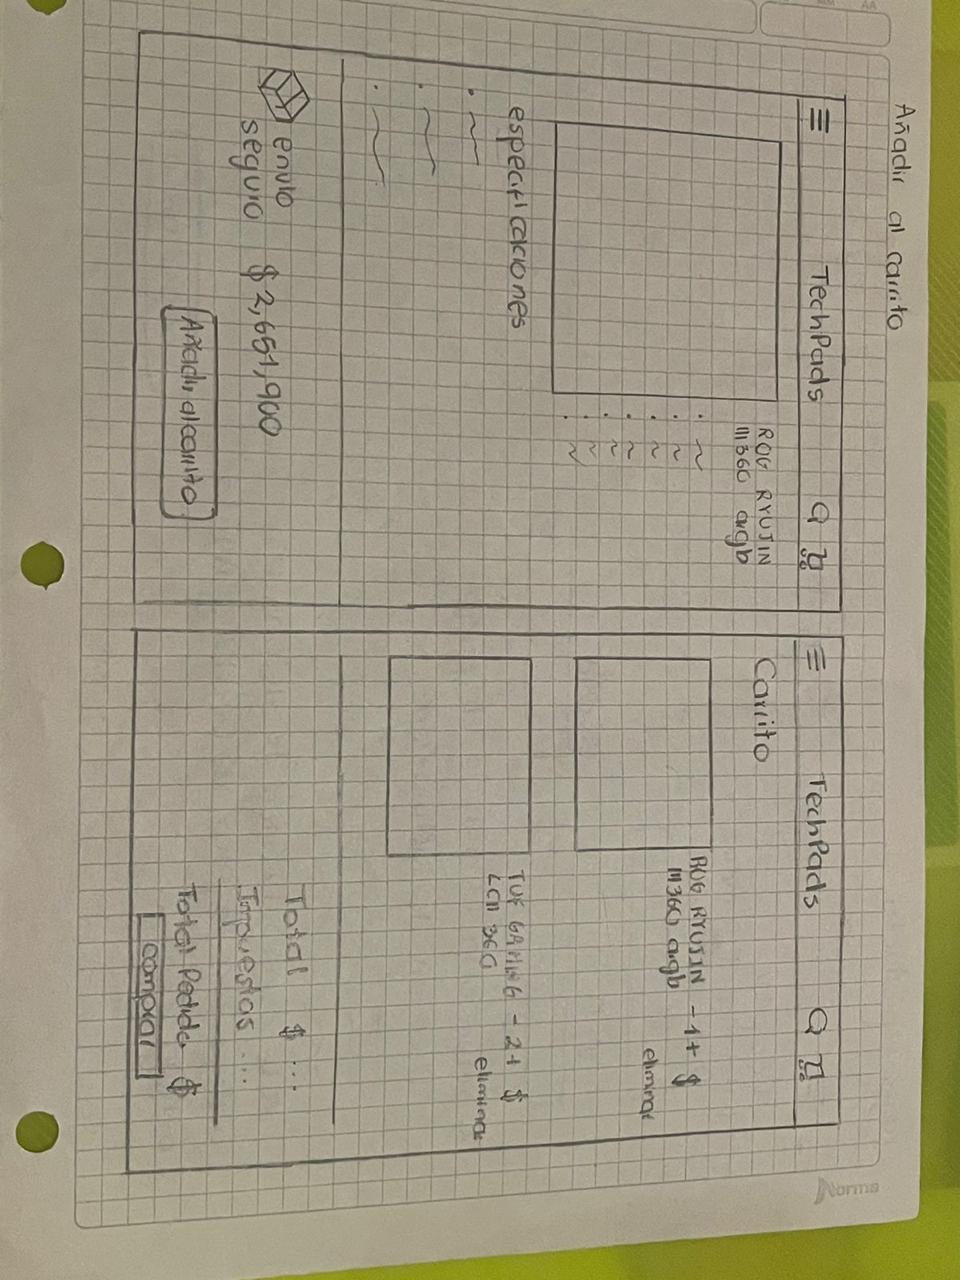 Añadir al carrito
TechPads
ROG RYUJIN
III360 argb
especificaciones
envio
seguro
$2,651,900
Añadir al carrito
TechPads
Carrito
ROG RYUJIN - 1 + $
III360 argb
eliminar
TUF GAMING - 2 + $
LCII 360
eliminar
Total $ ...
Impuestos ...
Total Pedido $
comprar
Norma